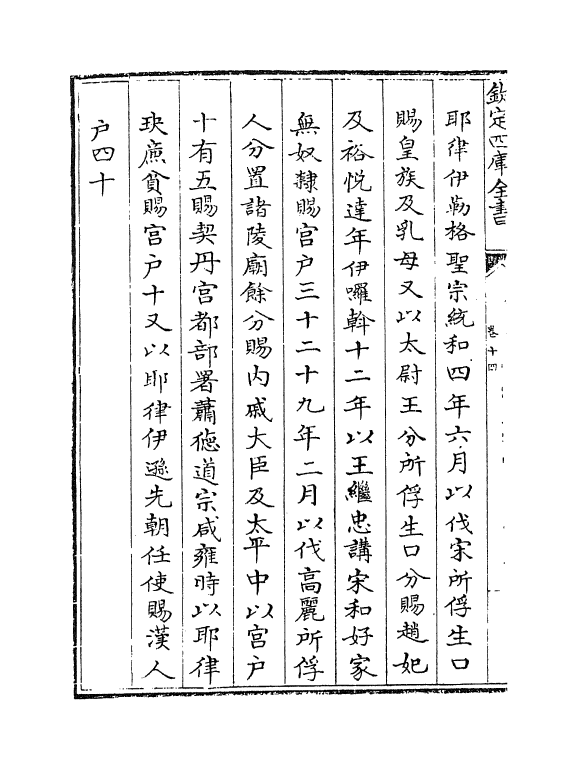 欽定四庫全書
卷十四
耶律伊勒格聖宗統和四年六月以伐宋所俘生口
賜皇族及乳母又以太尉王分所俘生口分賜趙妃
及裕悅達年伊囉斡十二年以王繼忠講宋和好家
無奴隸賜宮户三十二十九年二月以伐高麗所俘
人分置諸陵廟餘分賜内戚大臣及太平中以宮户
十有五賜契丹宮都部署蕭徳道宗咸雍時以耶律
玦㢘貧賜宮户十又以耶律伊遜先朝任使賜漢人
户四十